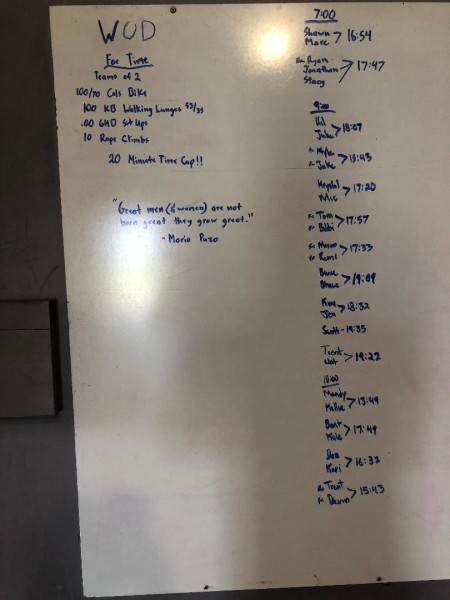 WOD
For Time
Teams of 2
100/70 Cals Bike
100 KB Walking Lunges 53/35
100 GHD Sit Ups
10 Rope Climbs
20 Minute Time Cap!!
"Great men (& women) are not
born great they grow great."
- Mario Puzo
7:00
Shawn
Marc > 16:54
Rx Ryan
Jonathan
Stacy > 17:47
9:00
Jake > 18:07
Rx Kyle
Rx Jake
Krystal
Mic > 17:20
Rx Tom
Rx Bobbi > 17:57
Rx
Rx > 17:33
> 19:09
Kim
Jen > 18:32
Scott - 19:35
Trent
> 19:22
10:00
Mandy
Kellie
Kyle > 17:49
Kari > 16:32
Rx Trent
Rx Devin > 15:43